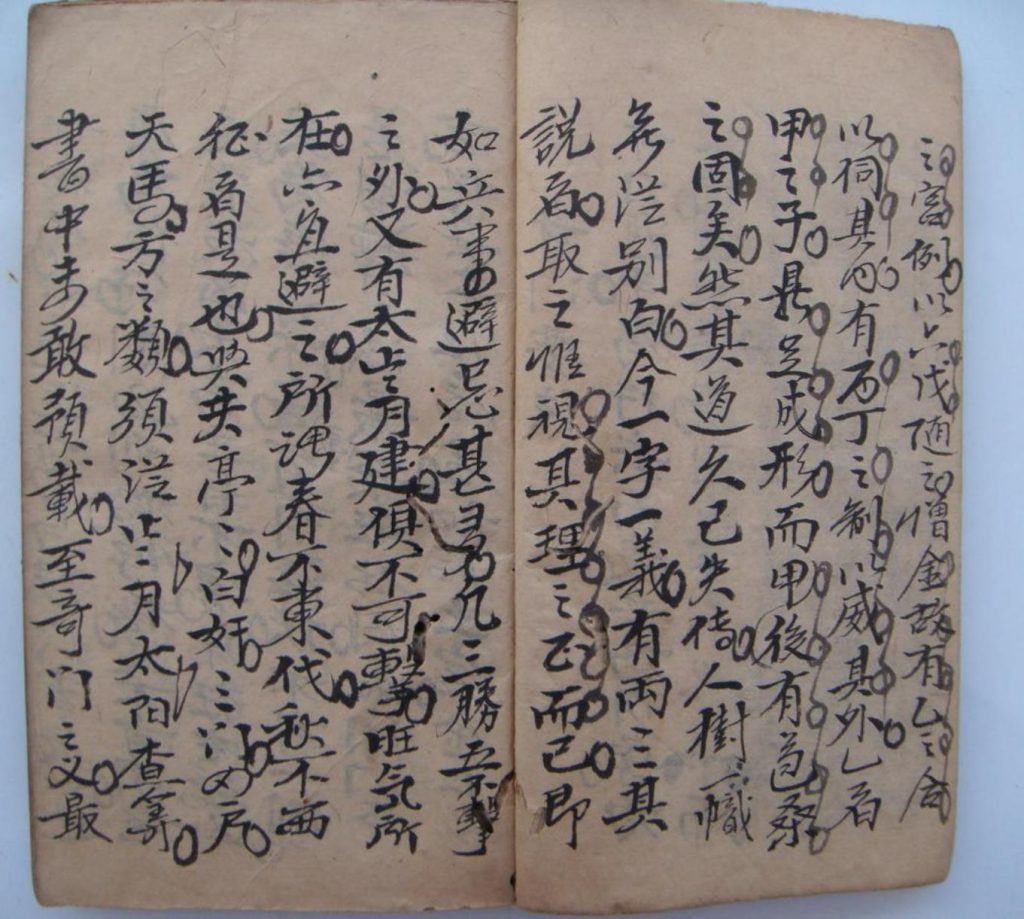 之富例以六戊随之憎金故有乙之合
以伺其内有丙丁之制以威其外乙者
甲之子県足成形而甲後有苞桑
之固矣然其道久已失传人樹一幟
無從别白今一字一義有两三其
説者取之惟視其理之正而已即
如六事避忌甚多凡三勝五不擊
之外又有太歲月建俱不可擊旺気所
在亦宜避之所謂春不東伐秋不西
征者是也與夫亭亭白奸三门四户
天馬方之類須從月太阳查筹
書中未敢预載至奇门之义最